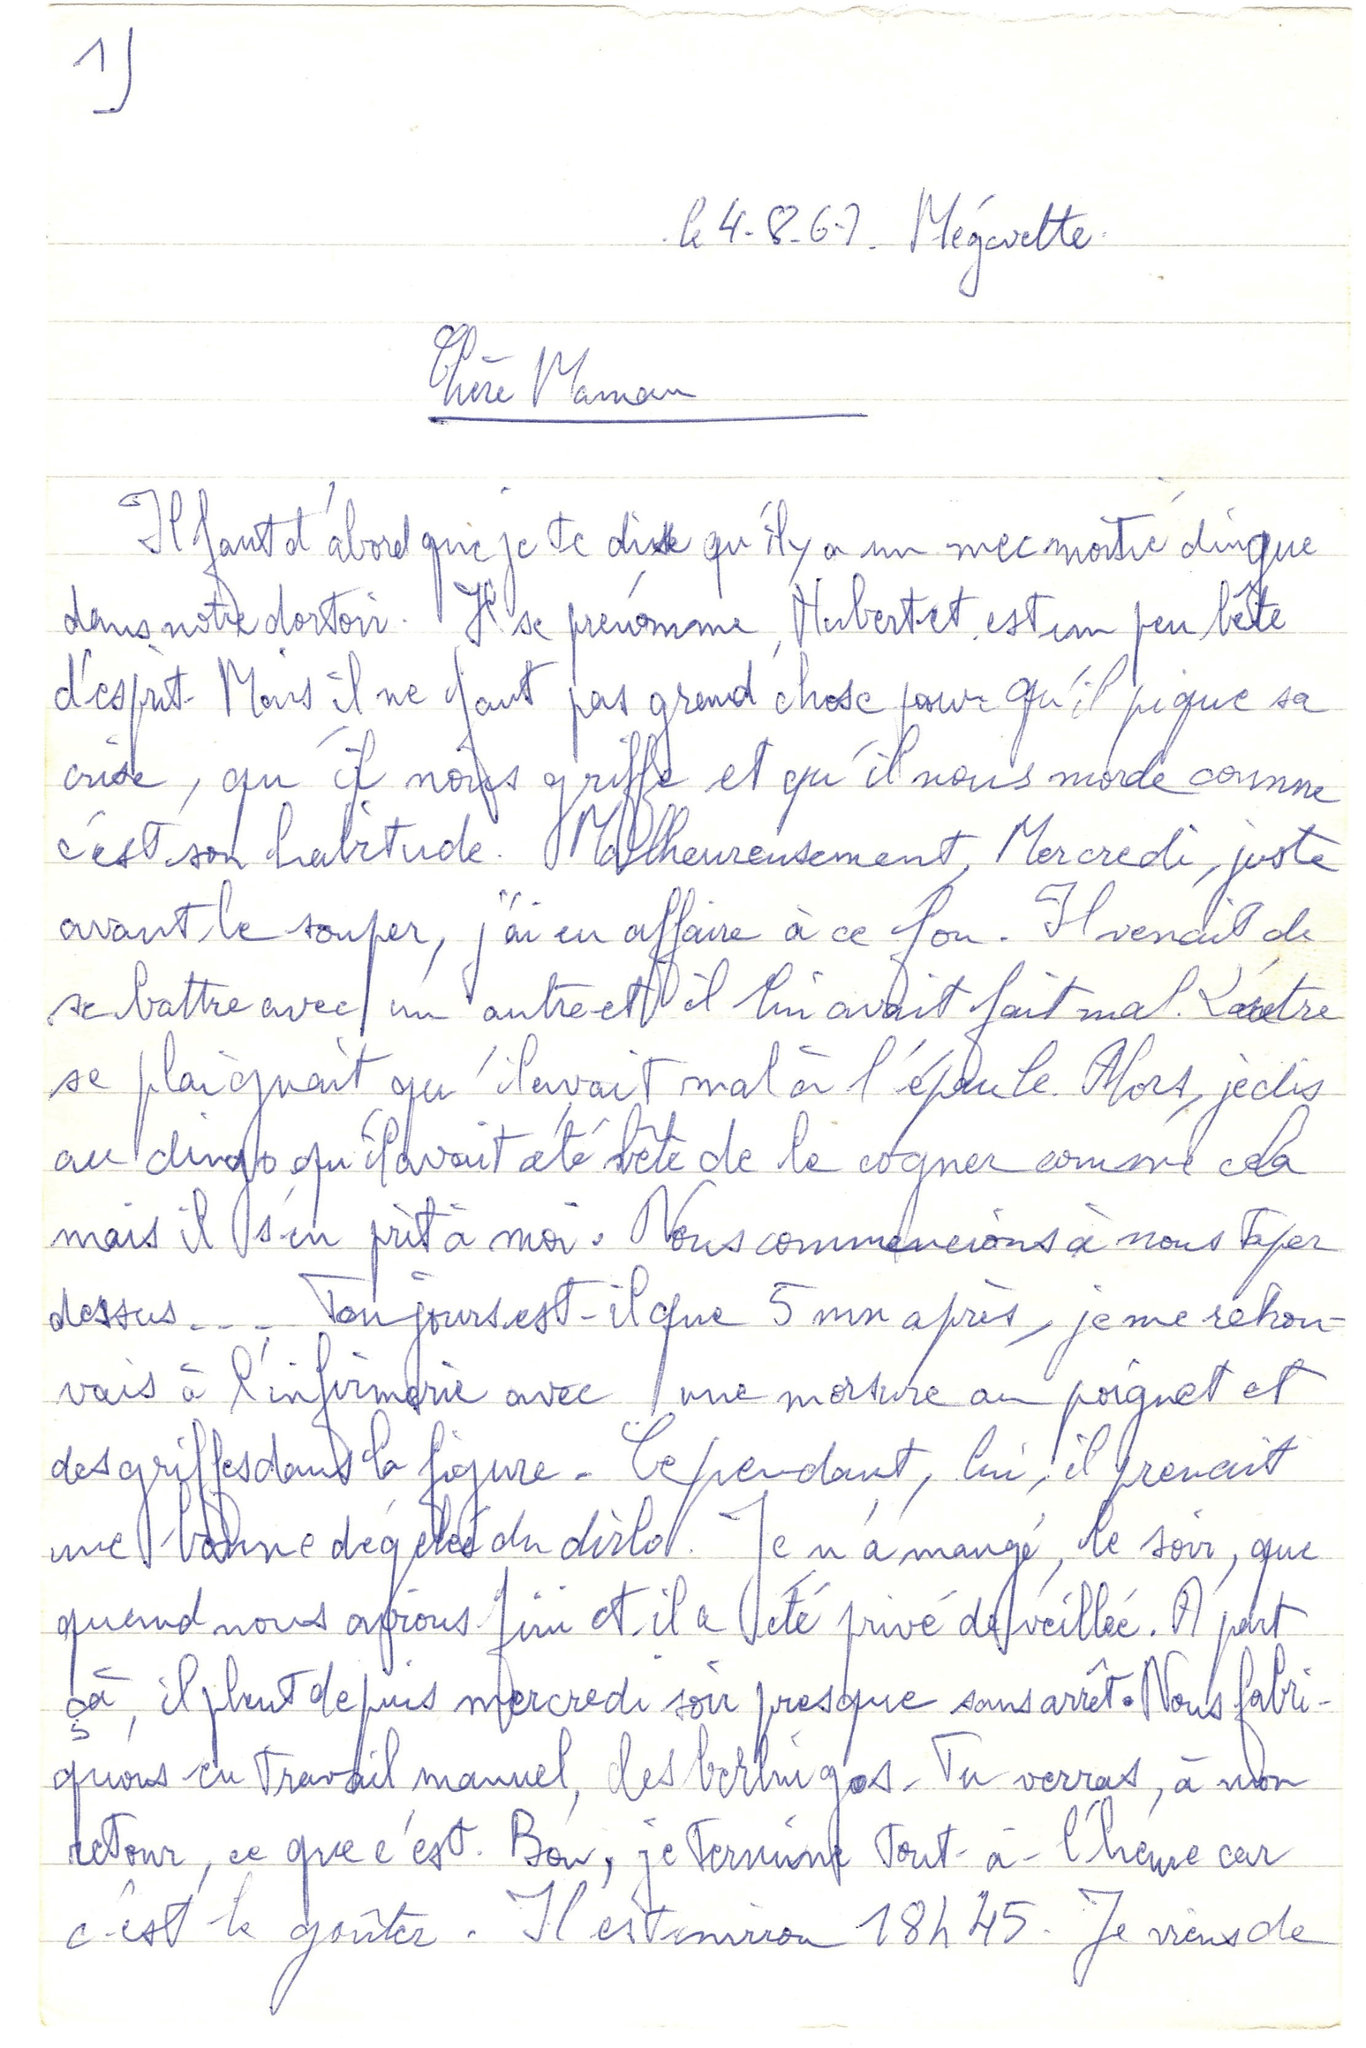 1)
le 4-8-67. Mégevette.
Chère Maman
Il faut d'abord que je te dise qu'il y a un mec moitié dingue
dans notre dortoir. Il se prénomme Hubert et est un peu bête
d'esprit. Mais il ne faut pas grand chose pour qu'il pique sa
crise, qu'il nous griffe et qu'il nous morde comme
c'est son habitude. Malheureusement, Mercredi, juste
avant le souper, j'ai eu affaire à ce fou. Il venait de
se battre avec un autre et il lui avait fait mal. L'autre
se plaignait qu'il avait mal à l'épaule. Alors, je dis
au dingo qu'il avait été bête de le cogner comme cela
mais il s'en prit à moi. Nous commencions à nous taper
dessus... Toujours est-il que 5 mn après, je me retrou-
vais à l'infirmerie avec une morsure au poignet et
des griffes dans la figure. Cependant, lui, il prenait
une bonne dégelée du dirlo. Je n'a mangé, le soir, que
quand nous avions fini et il a été privé de veillée. A part
çà, il pleut depuis mercredi soir presque sans arrêt. Nous fabri-
quons en travail manuel, des berlingos. Tu verras, à mon
retour, ce que c'est. Bon, je termine tout-à-l'heure car
c'est le goûter. Il est environ 18h45. Je viens de